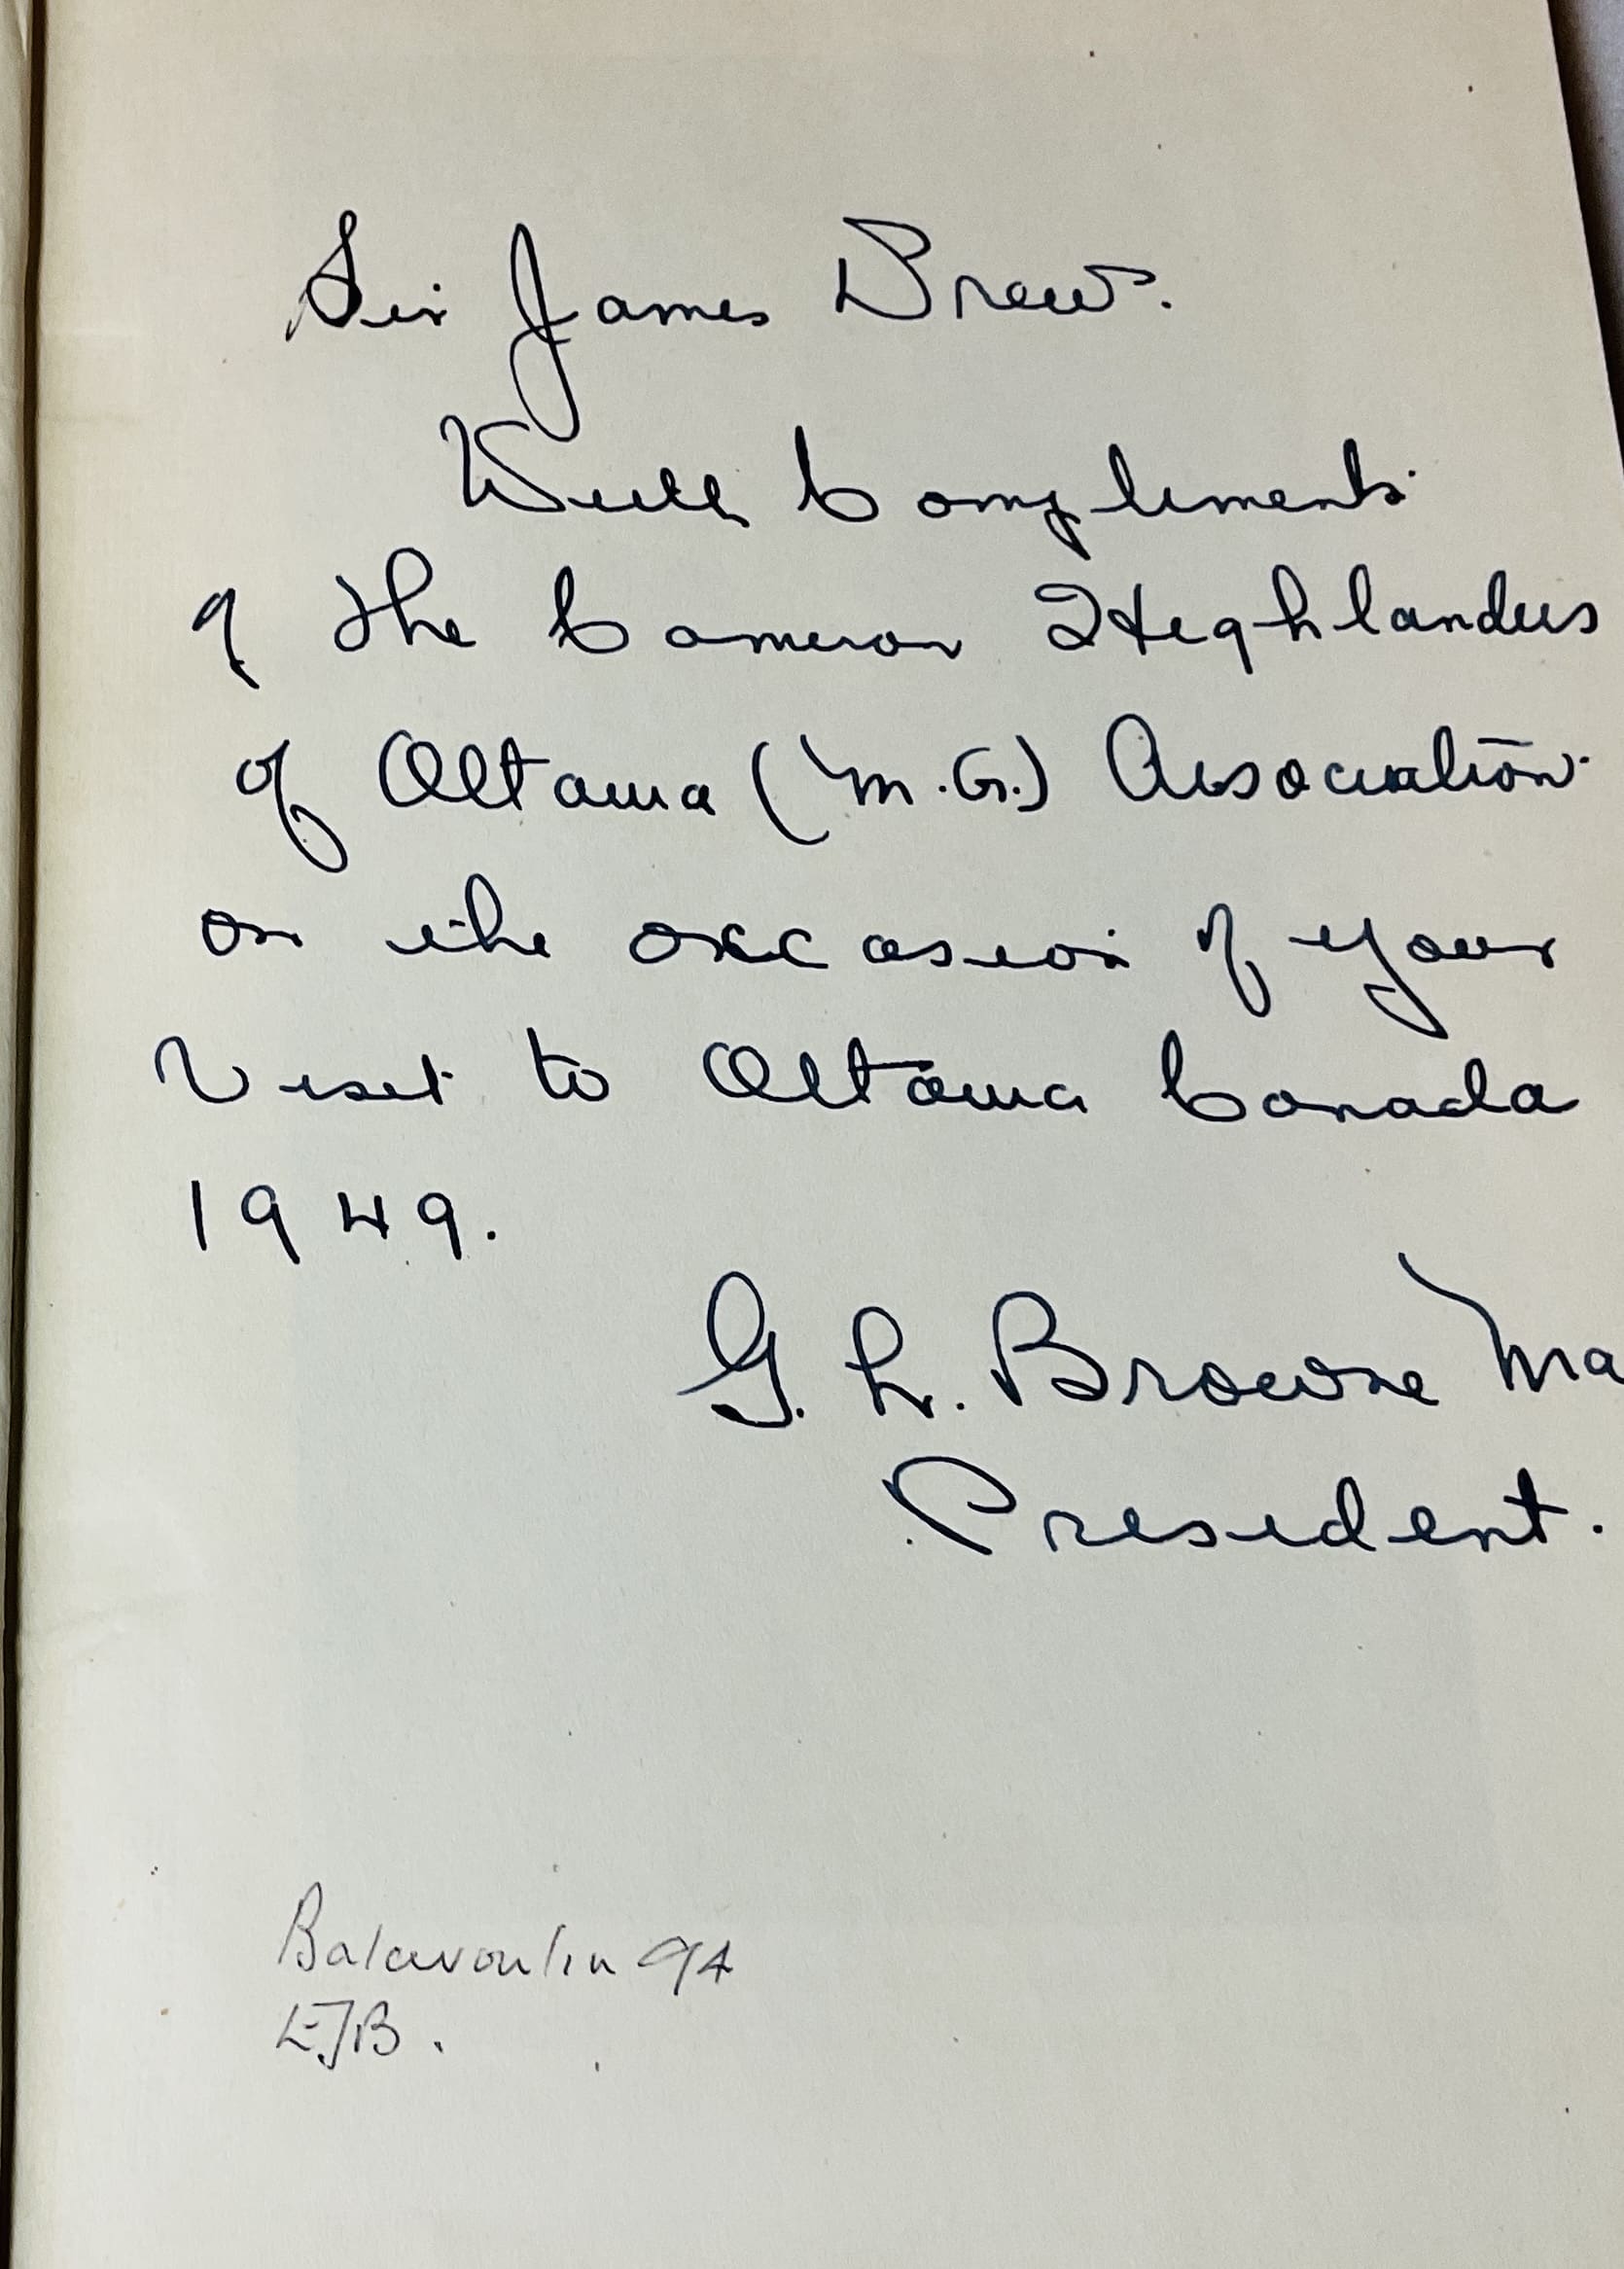 Sir James Drew.
With Compliments
of the Cameron Highlanders
of Ottawa (M.G.) Association
on the occasion of your
Visit to Ottawa Canada
1949.
G. L. Browne Ma
President.
94
EJB.